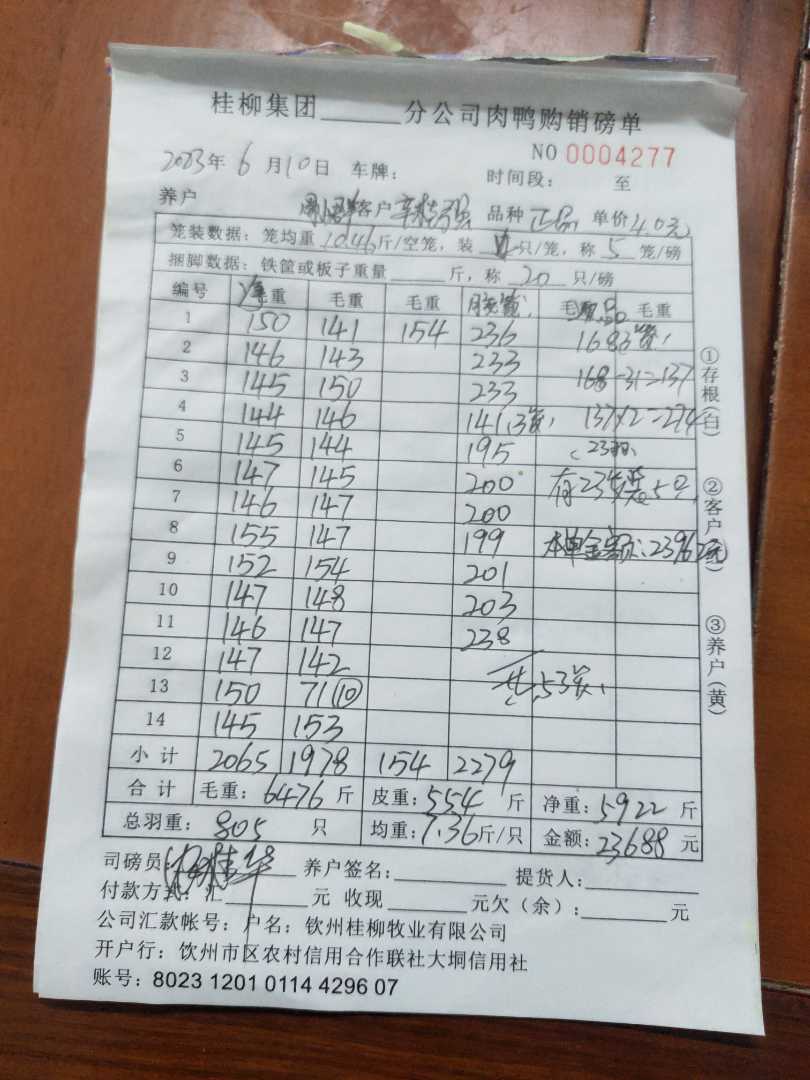 桂柳集团______分公司肉鸭购销磅单
NO 0004277
2023年 6 月 10日 车牌: 时间段: 至
养户 客户 品种 正品 单价 4.0元
笼装数据: 笼均重 10.46斤/空笼, 装 只/笼, 称 5 笼/磅
捆脚数据: 铁筐或板子重量______斤, 称 20 只/磅
编号 毛重 毛重 毛重 毛重 毛重
1 150 141 154 236 168 3袋
2 146 143 233
3 145 150 233 168-31=137
4 144 146 141 13袋 137×2=274
5 145 144 195 23
6 147 145 200 有23袋 5只
7 146 147 200
8 155 147 199 本单金额: 23962元
9 152 154 201
10 147 148 203
11 146 147 238
12 147 142
13 150 71⑩ 共53袋
14 145 153
小计 2065 1978 154 2279
合计 毛重: 6476 斤 皮重: 554 斤 净重: 5922 斤
总羽重: 805 只 均重: 7.36斤/只 金额: 23688 元
司磅员: 养户签名: 提货人:
付款方式: 汇______元 收现______元欠(余):______元
公司汇款帐号: 户名: 钦州桂柳牧业有限公司
开户行: 钦州市区农村信用合作联社大垌信用社
账号: 8023 1201 0114 4296 07
①存根(白)
②客户(红)
③养户(黄)